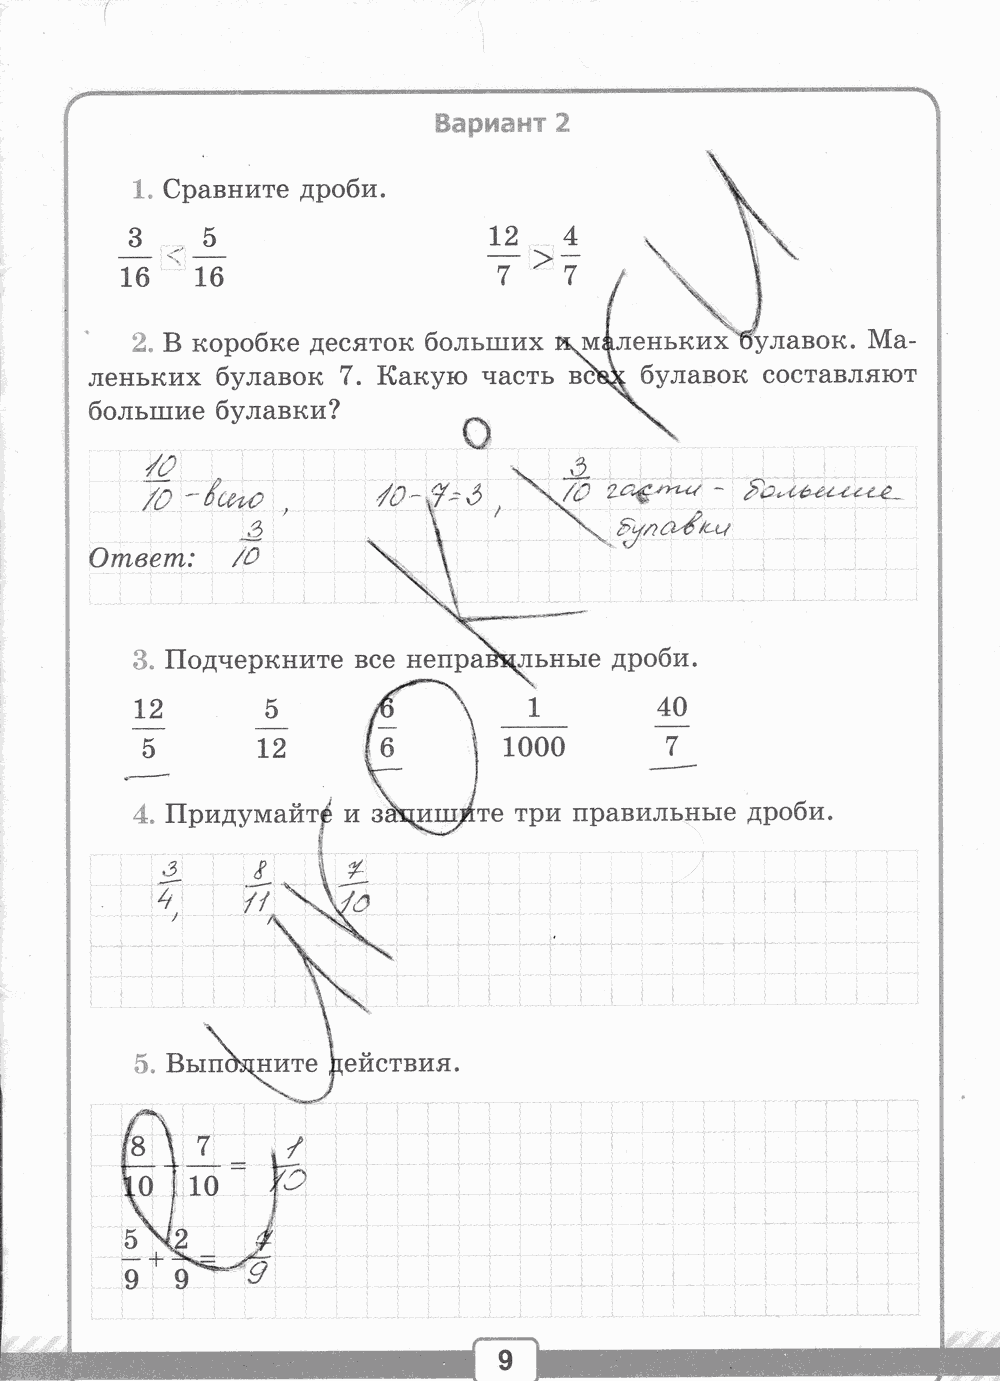 Вариант 2
1. Сравните дроби.
3/16 < 5/16    12/7 > 4/7
2. В коробке десяток больших и маленьких булавок. Ма-
леньких булавок 7. Какую часть всех булавок составляют
большие булавки?
10/10 - всего, 10-7=3, 3/10 части - большие
булавки
Ответ: 3/10
3. Подчеркните все неправильные дроби.
12/5 5/12 6/6 1/1000 40/7
4. Придумайте и запишите три правильные дроби.
3/4, 8/11, 7/10
5. Выполните действия.
8/10 - 7/10 = 1/10
5/9 + 2/9 = 7/9
9